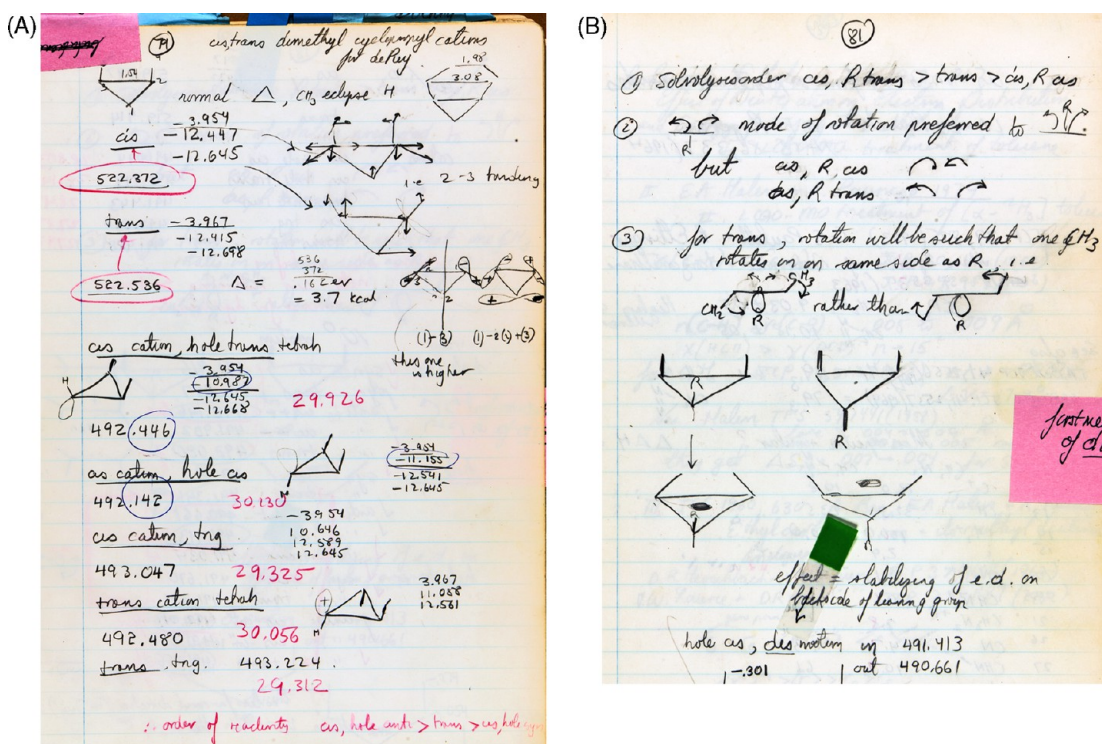 (A)
cis, trans dimethyl cyclopropyl cations
for dePuy
1.54 2
1.98
3.08
normal △, CH3 eclipse H
-3.954
-12.447
-12.645
cis
522.372
i.e
2-3 bonding
trans
-3.967
-12.415
-12.698
522.536
536
372
Δ =
= 3.7 kcal
2
(1)-(3) (1)-2(2)+(3)
this one
is higher
cis cation, hole trans tetrah
H
-3.954
-10.987
-12.645
-12.668
29.926
492.446
cis cation, hole cis
-3.954
-11.155
-12.541
-12.645
492.142
30.130
H
cis cation, tng
-3.954
10.646
12.589
12.645
493.047
29.325
trans cation tetrah
+
H
3.967
11.088
12.561
492.480
30.056
trans, tng. 493.224
29.312
∴ order of reactivity cis, hole anti > trans > cis, hole syn
(B)
81
① Solvolysis order cis, R trans > trans > cis, R cis
② mode of rotation preferred to
R
R
but cis, R, cis
cis, R trans
③ for trans, rotation will be such that one CH3
rotates in on same side as R, i.e
CH3
CH3
rather than
R
R
R
R
R
effect = stabilizing of e.d. on
backside of leaving group
hole cis, dis motion in 491.413
-.301 out 490.661
first me
of d